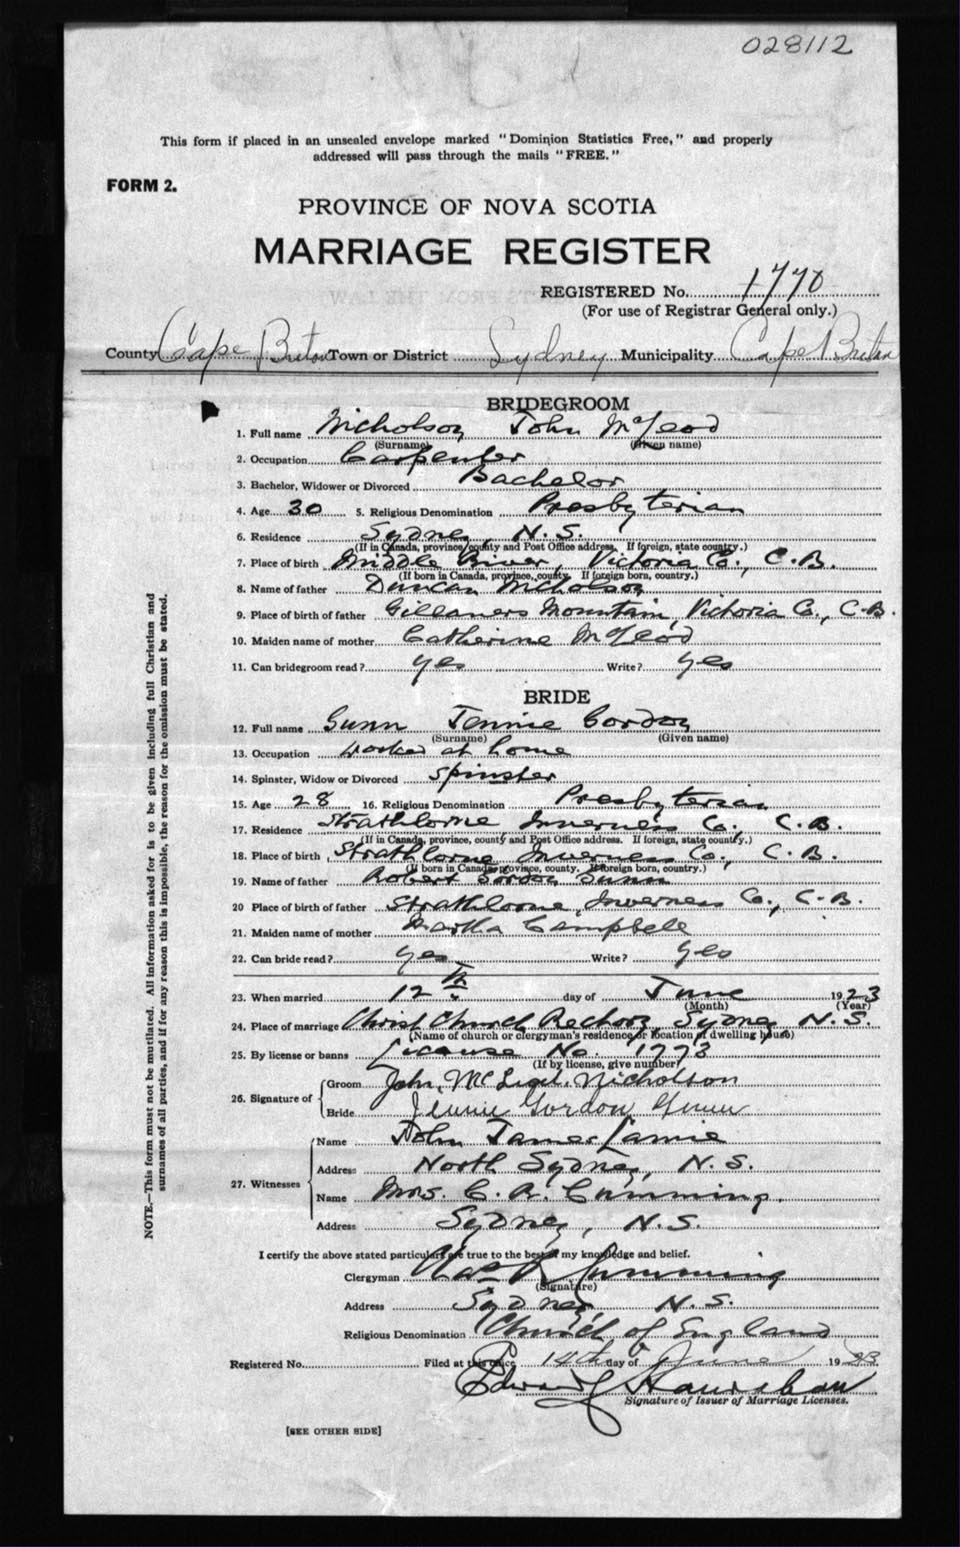 028112
This form if placed in an unsealed envelope marked "Dominion Statistics Free," and properly
addressed will pass through the mails "FREE."
FORM 2.
PROVINCE OF NOVA SCOTIA
MARRIAGE REGISTER
REGISTERED No. 1770
(For use of Registrar General only.)
County Cape Breton Town or District Sydney Municipality Cape Breton
BRIDEGROOM
1. Full name Nicholson John McLeod
(Surname) (Given name)
2. Occupation Carpenter
3. Bachelor, Widower or Divorced Bachelor
4. Age 30 5. Religious Denomination Presbyterian
6. Residence Sydney, N.S.
(If in Canada, province, county and Post Office address. If foreign, state country.)
7. Place of birth Middle River, Victoria Co., C.B.
(If born in Canada, province, county. If foreign born, country.)
8. Name of father Duncan Nicholson
9. Place of birth of father Gillanders Mountain, Victoria Co., C.B.
10. Maiden name of mother Catherine McLeod
11. Can bridegroom read? yes Write? yes
BRIDE
12. Full name Gunn Jennie Gordon
(Surname) (Given name)
13. Occupation worked at home
14. Spinster, Widow or Divorced Spinster
15. Age 28 16. Religious Denomination Presbyterian
17. Residence Strathlorne Inverness Co., C.B.
(If in Canada, province, county and Post Office address. If foreign, state country.)
18. Place of birth Strathlorne Inverness Co., C.B.
(If born in Canada, province, county. If foreign born, country.)
19. Name of father Robert Gordon Gunn
20 Place of birth of father Strathlorne, Inverness Co., C.B.
21. Maiden name of mother Martha Campbell
22. Can bride read? yes Write? yes
23. When married 12th day of June 1923
(Month) (Year)
24. Place of marriage Christ Church Rectory, Sydney N.S.
(Name of church or clergyman's residence or location of dwelling house)
25. By license or banns License No. 1773
(If by license, give number)
26. Signature of
Groom John McLeod Nicholson
Bride Jennie Gordon Gunn
27. Witnesses
Name John James Lamie
Address North Sydney, N.S.
Name Mrs. C. R. Cumming.
Address Sydney, N.S.
I certify the above stated particulars are true to the best of my knowledge and belief.
Clergyman Chas R Cumming
(Signature)
Address Sydney, N.S.
Religious Denomination Church of England
Registered No. Filed at this office 14th day of June 1923
Edward
Signature of Issuer of Marriage Licenses.
[SEE OTHER SIDE]
NOTE.—This form must not be mutilated. All information asked for is to be given including full Christian and
surnames of all parties, and if for any reason this is impossible, the reason for the omission must be stated.